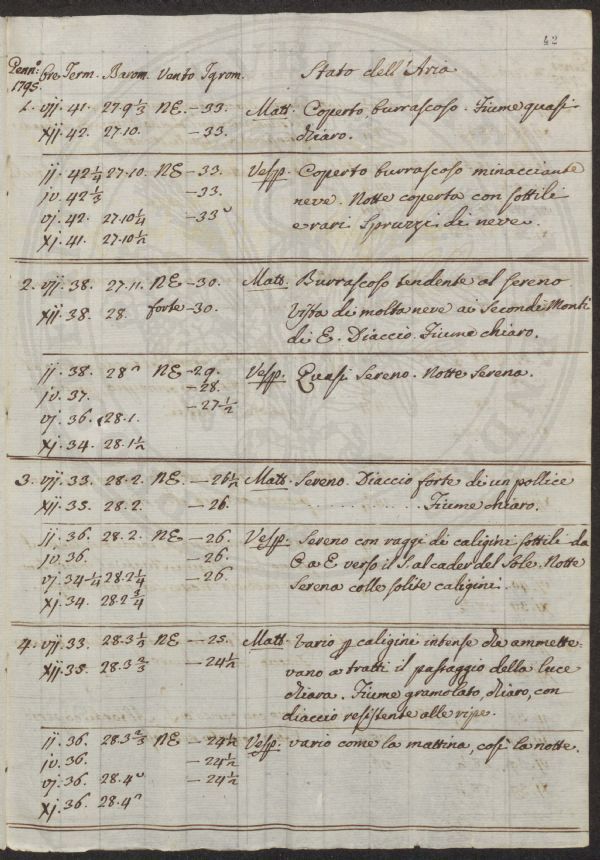 42
Genn.º Ore Term. Barom. Vento Igrom. Stato dell'Aria
1795.
1. vij. 41. 27.9 1/3 NE. — 33. Matt. Coperto, burrascoso. Fiume quasi
xij. 42. 27.10. — 33. chiaro.
ij. 42 1/4 27.10. NE — 33. Vesp. Coperto burrascoso minacciante
iv. 42 1/3 — 33. neve. Notte coperta con sottili
vj. 42. 27.10 1/4 — 33 e rari spruzzi di neve.
xj. 41. 27.10 1/2
2. vij. 38. 27.11. NE — 30. Matt. Burrascoso tendente al sereno.
xij. 38. 28. forte — 30. Vista di molta neve ai secondi Monti
di E. Diaccio. Fiume chiaro.
ij. 38. 28 NE — 29. Vesp. Quasi Sereno. Notte Serena.
iv. 37. — 28.
vj. 36. 28.1. — 27 1/2
xj. 34. 28.1 1/2
3. vij. 33. 28.2. NE. — 26 1/2 Matt. Sereno. Diaccio forte di un pollice
xij. 35. 28.2. — 26. Fiume chiaro.
ij. 36. 28.2. NE — 26. Vesp. Sereno con raggi di caligini sottili da
iv. 36. — 26. O a E verso il S. al cader del Sole. Notte
vj. 34 1/4 28.2 1/4 — 26. Serena colle solite caligini.
xj. 34. 28.2 3/4
4. vij. 33. 28.3 1/3 NE — 25. Matt. Vario p caligini intense che ammette-
xij. 35. 28.3 2/3 — 24 1/2 vano a tratti il passaggio della luce
chiara. Fiume gramolato, chiaro, con
diaccio resistente alle ripe.
ij. 36. 28.3 2/3 NE — 24 1/2 Vesp. vario come la mattina, così la notte.
iv. 36. — 24 1/2
vj. 36. 28.4 — 24 1/2
xj. 36. 28.4